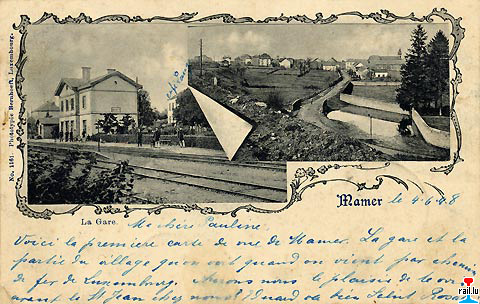 No. 1161. Phototypie Bernhoeft, Luxembourg.
La Gare.
Mamer, le 4.6.48
Ma chère Pauline!
Voici la première carte de vue de Mamer. La gare et la
partie du village qu'on voit quand on vient par chemin
de fer de Luxembourg. Aurons nous le plaisir de
avant le St Jean chez nous? Quand va
rail.lu